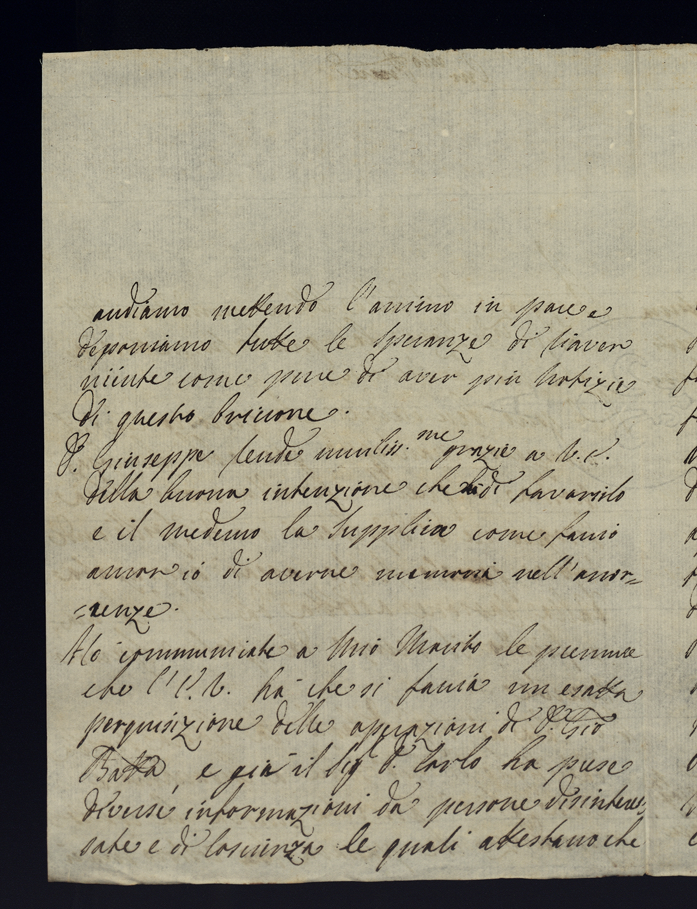 andiamo mettendo l'animo in pace e
deponiamo tutte le speranze di riaver
niente come pure di aver più notizie
di questo briccone.
D. Giuseppe rende umiliss.me grazie a V.E.
della buona intenzione che di favorirlo
e il medemo la supplica come facio
ancor io di averne memoria nell'ocor=
=renze.
Hò communicate a mio Marito le premure
che l'E.V. ha che si facia un esatta
perquisizione delle operazioni di D. Gio
Batta, e già il Sig D. Carlo ha prese
diverse informazioni da persone disinteres=
sate e di coscienza le quali attestano che